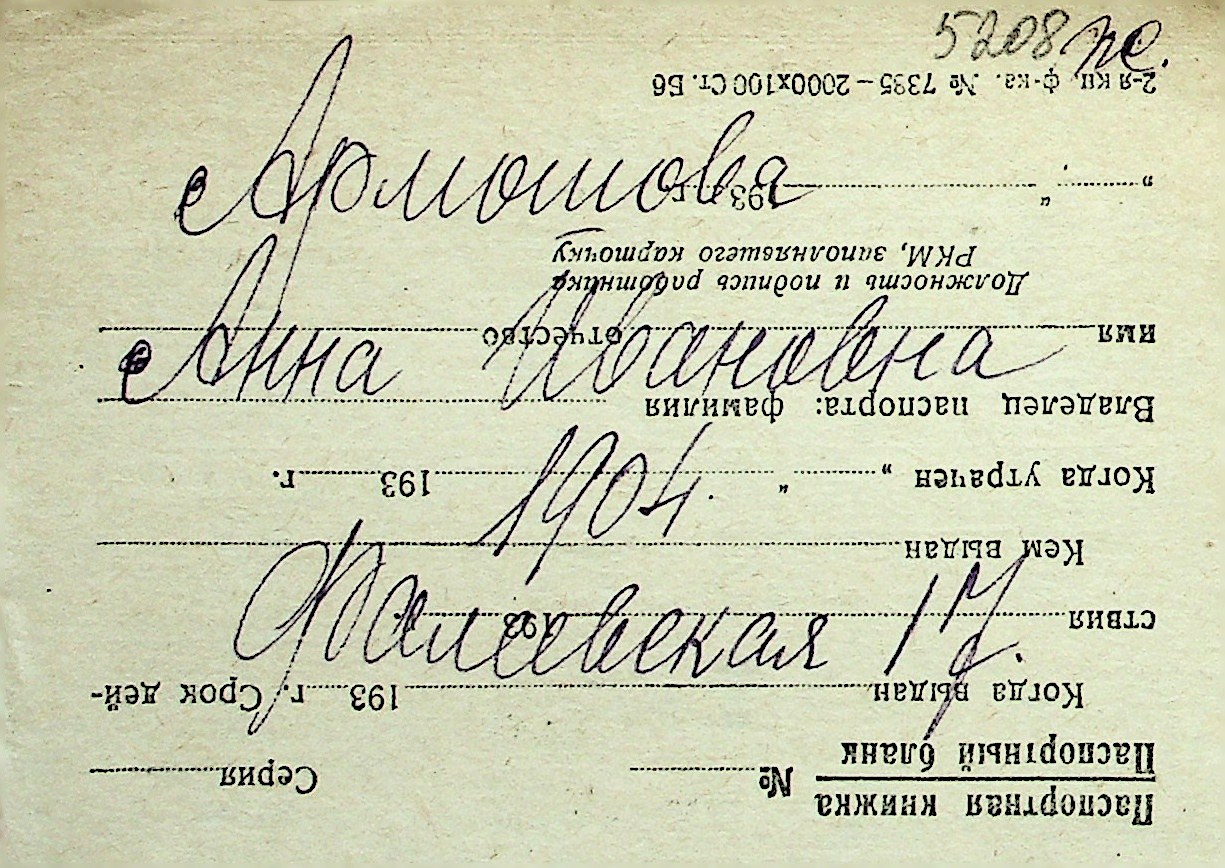 5208
Анна Ивановна
1904.
Фалеевская 17.
Паспортная книжка
Паспортный бланк
№ Серия
Когда выдан 193 г. Срок дей-
ствия 193
Кем выдан
Когда утрачен „ “ 193 г.
Владелец паспорта: фамилия
имя отчество
Должность и подпись работника
РКМ, заполнявшего карточку
„ “ 193 г.
2-я кн. ф-ка. № 7385—2000х100 Ст. Б6